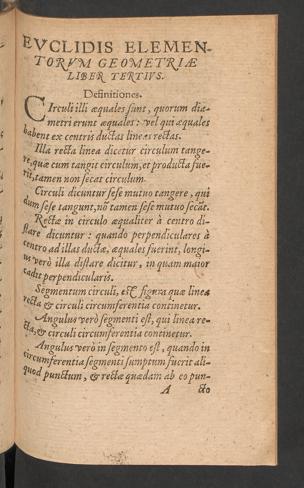 EVCLIDIS ELEMEN-
TORVM GEOMETRIÆ
LIBER TERTIVS.
Definitiones.
CIrculi illi æquales sunt, quorum dia-
metri erunt æquales: vel qui æquales
habent ex centris ductas lineas rectas.
Illa recta linea dicetur circulum tange-
re, quæ cum tangit circulum, et producta fue-
rit, tamen non secat circulum.
Circuli dicuntur sese mutuo tangere, qui
dum sese tangunt, nō tamen sese mutuo secāt.
Rectæ in circulo æqualiter à centro di-
stare dicuntur: quando perpendiculares à
centro ad illas ductæ, æquales fuerint, longi-
us verò illa distare dicitur, in quam maior
cadit perpendicularis.
Segmentum circuli, est figura quæ linea
recta & circuli circumferentia continetur.
Angulus verò segmenti est, qui linea re-
cta, & circuli circumferentia continetur.
Angulus verò in segmento est, quando in
circumferentia segmenti sumptum fuerit ali-
quod punctum, & rectæ quædam ab eo pun-
A cto